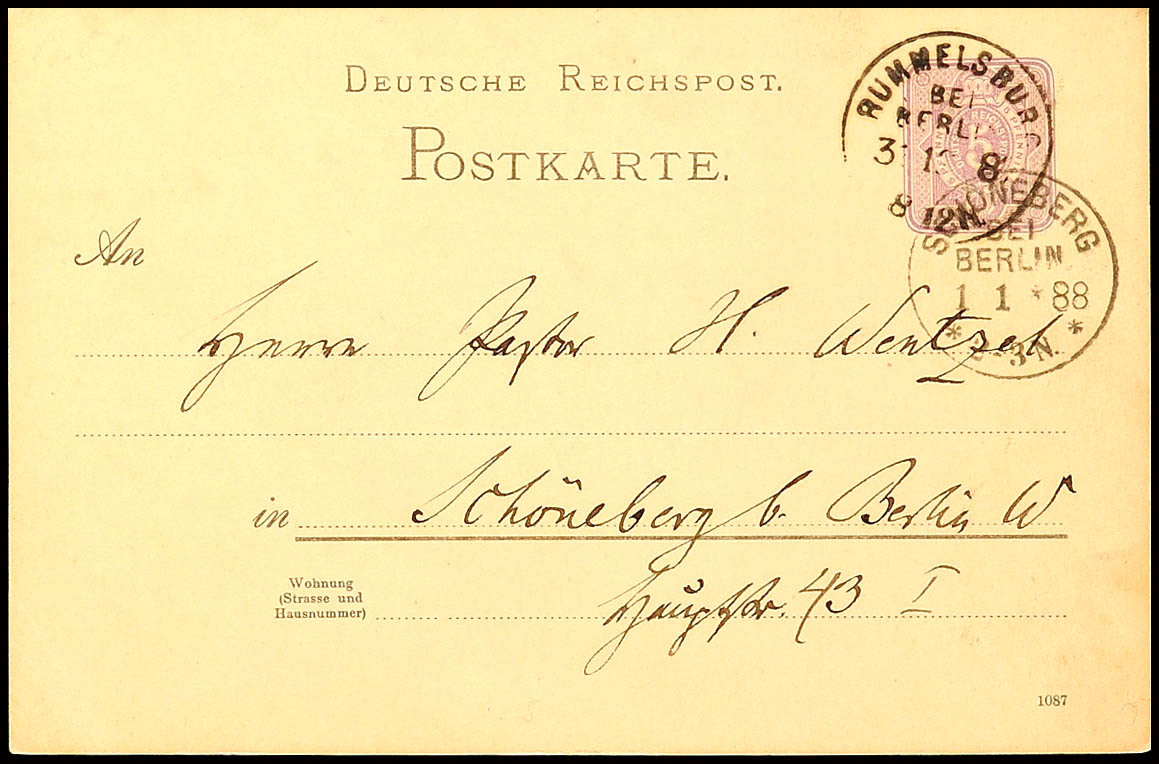 DEUTSCHE REICHSPOST.
POSTKARTE.
RUMMELSBURG
BEI
BERLIN
8
8 12N.
SCHÖNEBERG
BEI
BERLIN.
1 1 * 88
* 2-3N. *
An
Herrn Pastor H. Wentzel
in Schöneberg b. Berlin W
Wohnung
(Strasse und
Hausnummer)
Hauptstr. 43 I
1087